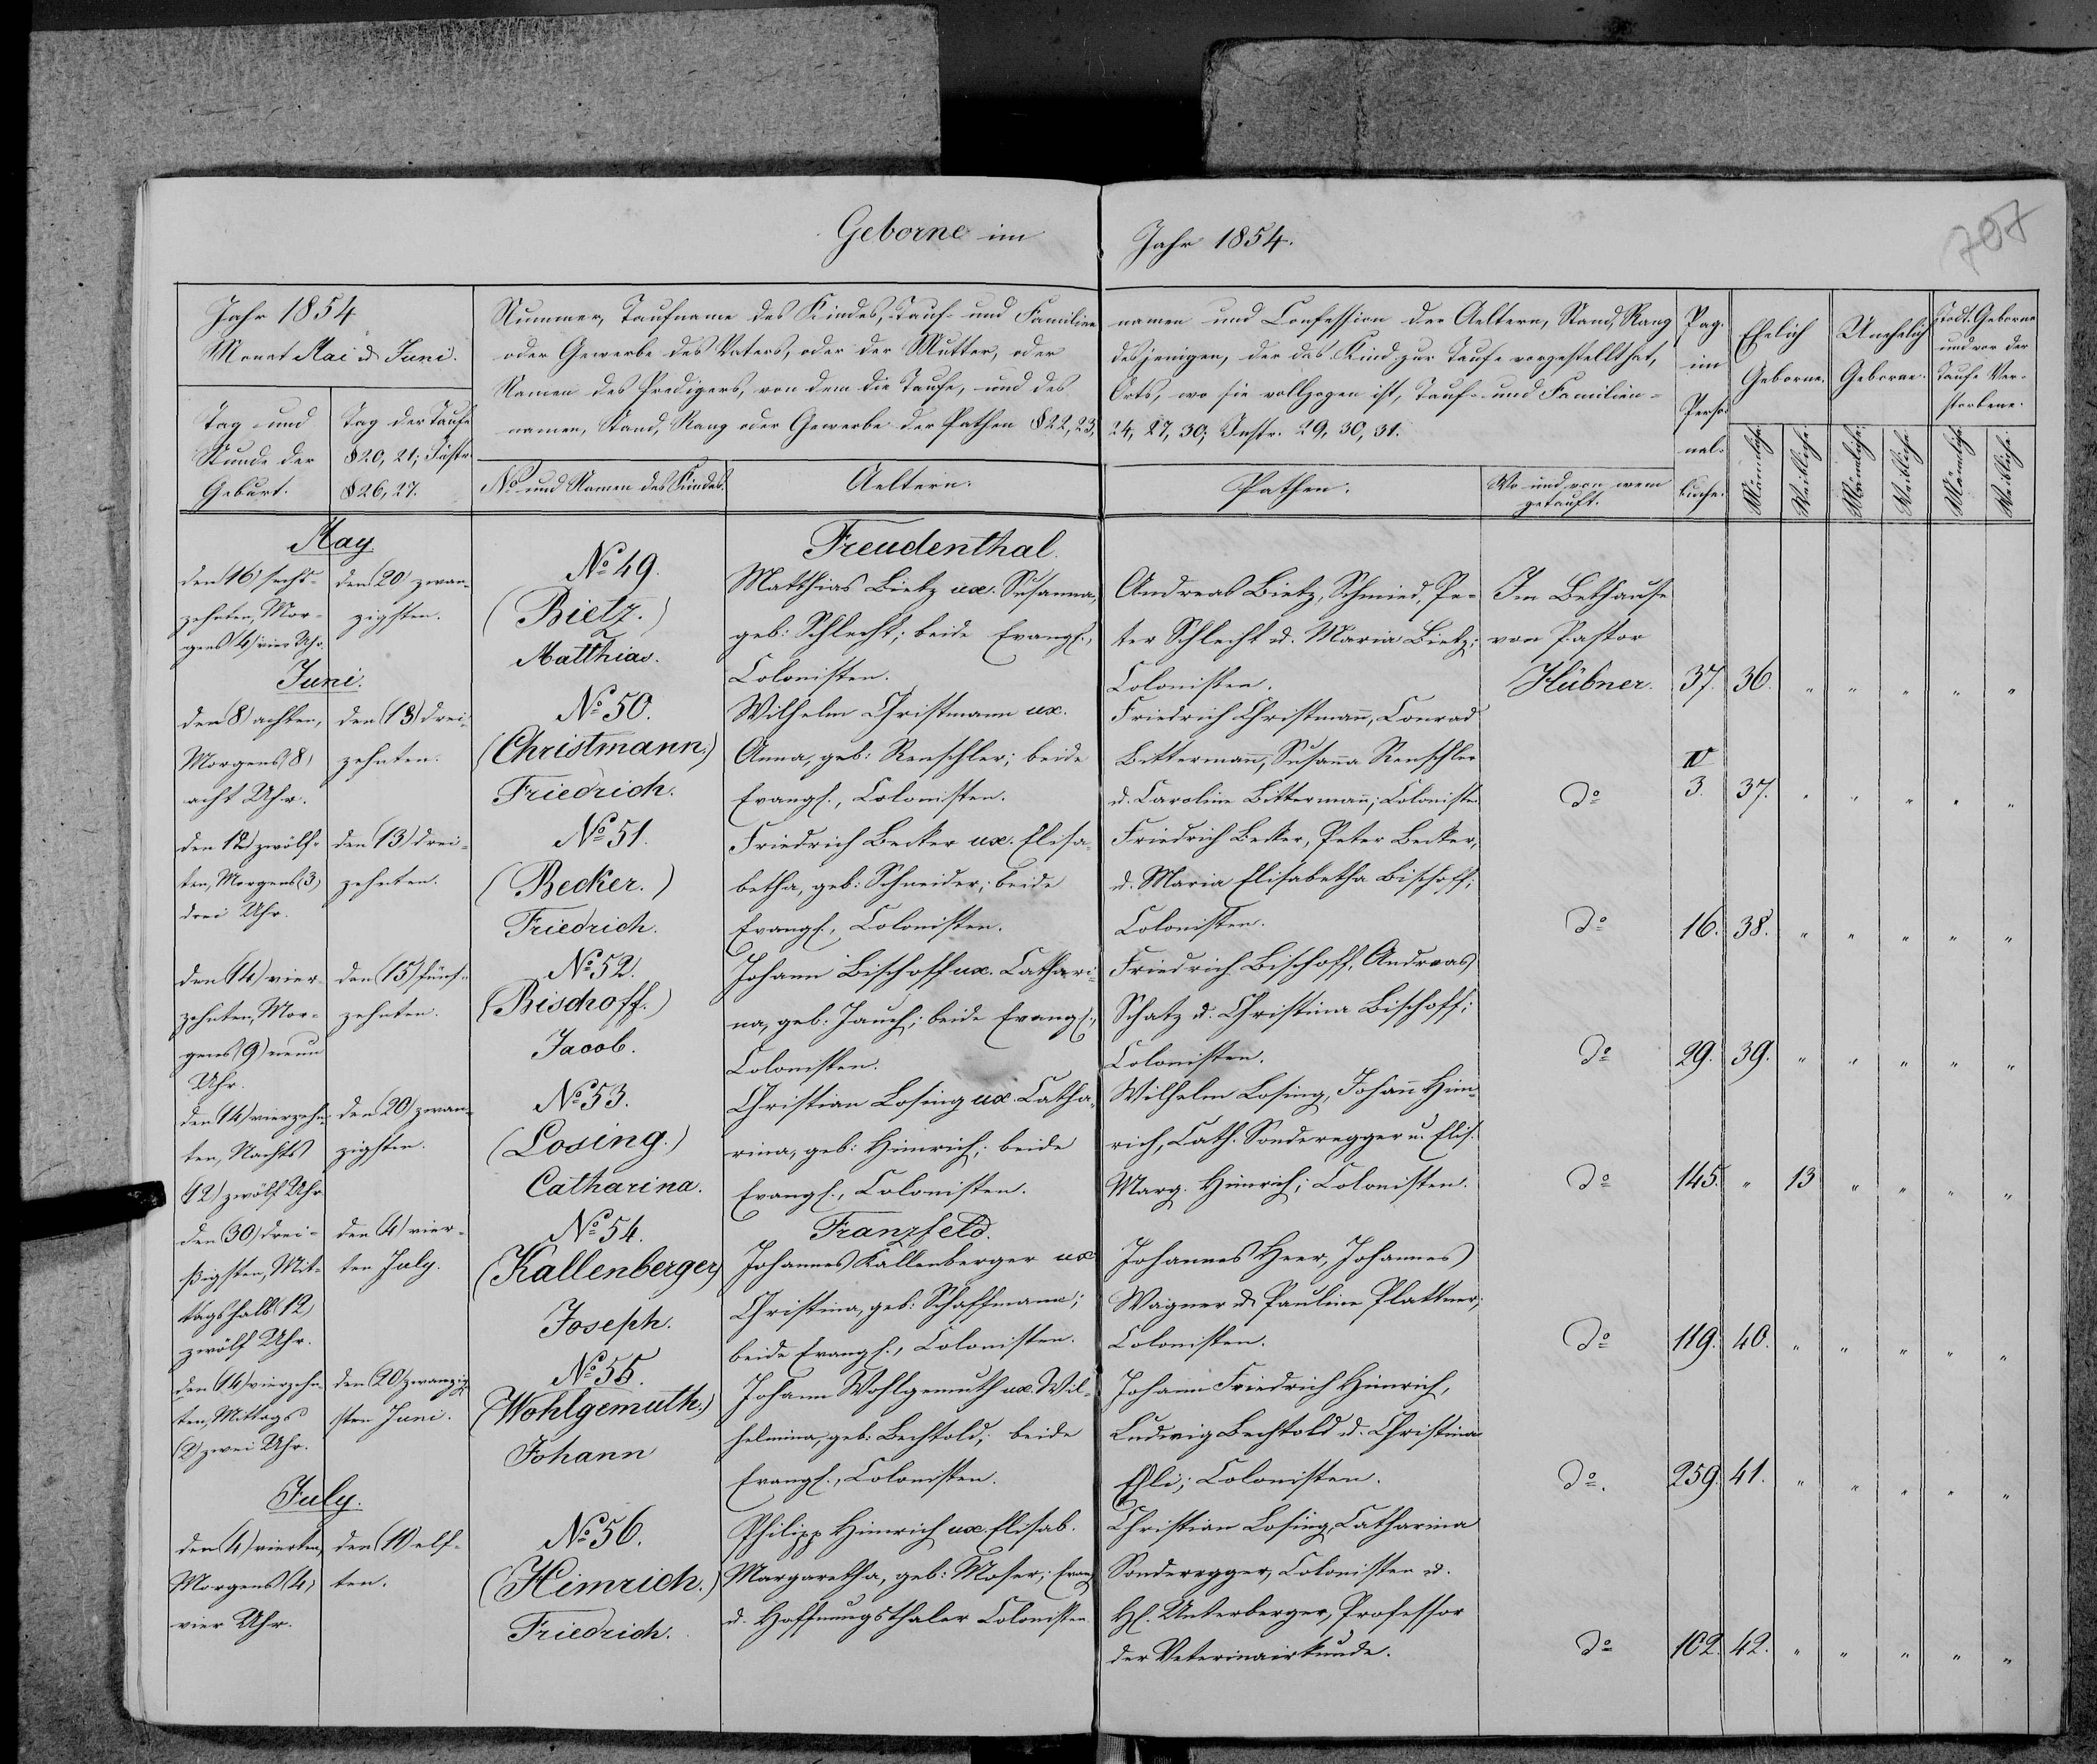 Geborne im Jahr 1854.
707
Jahr 1854
Monat Mai u Juni.
Tag und
Stunde der
Geburt.
Tag der Taufe
§ 20, 21; Instr.
§ 26, 27.
Nummer, Taufname des Kindes, Tauf- und Familien
oder Gewerbe des Vaters, oder der Mutter, oder
Namen des Predigers, von dem die Taufe, und des
namen, Stand, Rang oder Gewerbe der Pathen § 22, 23,
No und Namen des Kindes.
Aeltern.
namen und Confession der Aeltern, Stand, Rang
desjenigen, der das Kind zur Taufe vorgestellt hat,
Orts, wo sie vollzogen ist, Tauf- und Familien-
24, 27, 30; Instr. 29, 30, 31.
Pathen.
Wo und von wem
getauft.
Pag.
im
Perso-
nal-
buche.
Ehelich
Geborne.
Unehelich
Geborne.
Todt-Geborne
und vor der
Taufe Ver-
storbene.
Männliche.
Weibliche.
Männliche.
Weibliche.
Männliche.
Weibliche.
May
den 16) sechs-
zehnten, Mor-
gens (4) vier Uhr.
den 20) zwan-
zigsten.
No 49.
(Bietz.)
Matthias.
Freudenthal.
Matthias Bietz ux. Susanna,
geb: Schlecht; beide Evangl.,
Colonisten.
Andreas Bietz, Schmied, Pe-
ter Schlecht u. Maria Bietz;
Colonisten.
Im Bethause
von Pastor
Hübner.
37. 36. " " " " "
Juni.
den 8) achten,
Morgens (8)
acht Uhr.
den (13) drei-
zehnten.
No 50.
(Christmann.)
Friedrich.
Wilhelm Christmann ux.
Anna, geb: Renschler; beide
Evangl., Colonisten.
Friedrich Christmann, Conrad
Bittermann, Susanna Renschler
u. Caroline Bittermann; Coloniste.
do
IV
3. 37. " " " " "
den 12) zwölf-
ten, Morgens (3)
drei Uhr.
den (13) drei-
zehnten.
No 51.
(Becker.)
Friedrich.
Friedrich Becker ux. Elisa-
betha, geb: Schneider; beide
Evangl., Colonisten.
Friedrich Becker, Peter Becker,
u. Maria Elisabetha Bischoff;
Colonisten.
do
16. 38. " " " " "
den (14) vier
zehnten, Mor-
gens (9) neun
Uhr.
den (15) fünf-
zehnten.
No 52.
(Bischoff.)
Jacob.
Johann Bischoff ux. Cathari-
na, geb: Jauch; beide Evangl.,
Colonisten.
Friedrich Bischoff, Andreas
Schatz u. Christina Bischoff;
Colonisten.
do
29. 39. " " " " "
den (14) vierzehn-
ten, Nachts
(12) zwölf Uhr
den 20) zwan-
zigsten.
No 53.
(Losing.)
Catharina.
Christian Losing ux. Catha-
rina, geb: Himrich; beide
Evangl., Colonisten.
Wilhelm Losing, Johann Him-
rich, Cath. Sonderegger u. Elis.
Marg. Himrich; Colonisten.
do
145. " 13 " " " "
den (30) drei-
ßigsten, Mit-
tags halb (12)
zwölf Uhr.
den (4) vier-
ten July.
No 54.
(Kallenberger)
Joseph.
Franzfeld.
Johannes Kallenberger ux
Christina, geb: Schaffmann;
beide Evangl., Colonisten.
Johannes Heer, Johannes
Wagner u. Pauline Plattner;
Colonisten.
do
119. 40. " " " " "
den (14) vierzehn
ten, Mittags
(2) zwei Uhr.
den (20) zwanzig
sten Juni.
No 55.
(Wohlgemuth.)
Johann
Johann Wohlgemuth ux. Wil-
helmina, geb: Bechtold; beide
Evangl., Colonisten.
Johann Friedrich Himrich,
Ludwig Bechtold u. Christina
Ehli; Colonisten.
do.
259. 41. " " " " "
July.
den (4) vierten,
Morgens (4)
vier Uhr.
den (11) elf-
ten.
No 56.
(Himrich.)
Friedrich.
Philipp Himrich ux. Elisab.
Margaretha, geb: Moser; Evang
u. Hoffnungsthaler Colonisten.
Christian Losing, Catharina
Sonderegger, Colonisten u.
H. Unterberger, Professor
der Veterinairkunde.
do
102. 42. " " " " "